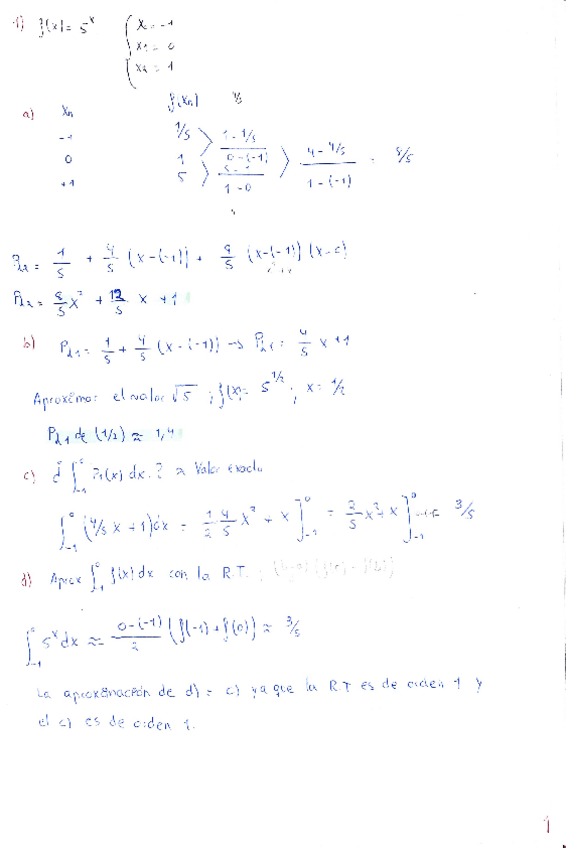 1) f(x) = 5^x { x₀ = -1
x₁ = 0
x₂ = 1
a) xₙ f(xₙ)
-1 1/5 > (1 - 1/5)/(0-(-1))
0 1 > (4 - 4/5)/(1-(-1)) = 8/5
+1 5 > (5-1)/(1-0)
P₂ = 1/5 + 4/5 (x-(-1)) + 8/5 (x-(-1)) (x-0)
P₂ = 8/5 x² + 12/5 x + 1
b) P₁ = 1/5 + 4/5 (x-(-1)) → P₁ = 4/5 x + 1
Aproximar el valor √5 ; f(x) = 5^(1/2) ; x = 1/2
P₁ de (1/2) ≈ 1,4
c) ¿ ∫₋₁⁰ P₁(x) dx ? ≈ Valor exacto
∫₋₁⁰ (4/5 x + 1) dx = 1/2 4/5 x² + x ]₋₁⁰ = 2/5 x² + x ]₋₁⁰ 3/5
d) Aprox ∫₋₁⁰ f(x) dx con la R.T.
∫₋₁⁰ 5^x dx ≈ (0-(-1))/2 (f(-1) + f(0)) ≈ 3/5
La aproximación de d) = c) ya que la R.T es de orden 1 y
el c) es de orden 1.
1